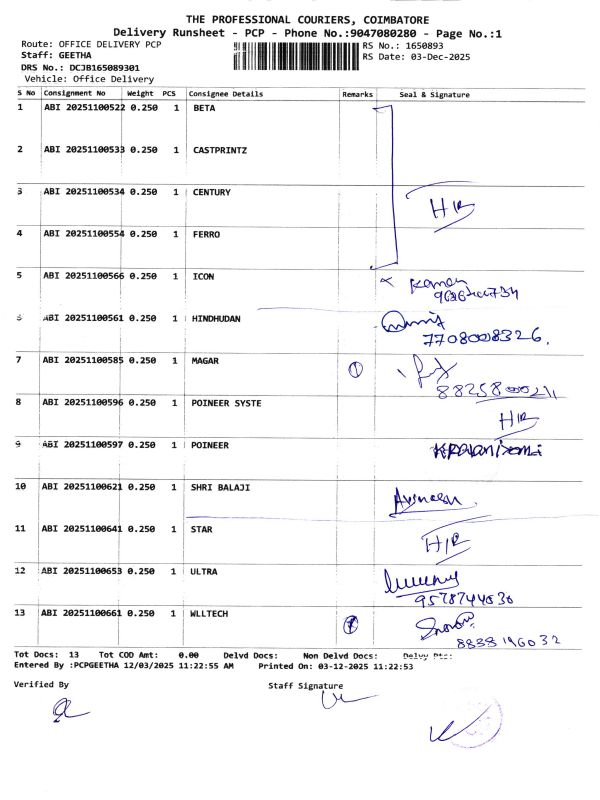 THE PROFESSIONAL COURIERS, COIMBATORE
Delivery Runsheet - PCP - Phone No.:9047080280 - Page No.:1
Route: OFFICE DELIVERY PCP
RS No.: 1650893
Staff: GEETHA
RS Date: 03-Dec-2025
DRS No.: DCJB165089301
Vehicle: Office Delivery
S No Consignment No Weight PCS Consignee Details Remarks Seal & Signature
1 ABI 20251100522 0.250 1 BETA
2 ABI 20251100533 0.250 1 CASTPRINTZ
3 ABI 20251100534 0.250 1 CENTURY
4 ABI 20251100554 0.250 1 FERRO
5 ABI 20251100566 0.250 1 ICON
6 ABI 20251100561 0.250 1 HINDHUDAN
7708008326.
7 ABI 20251100585 0.250 1 MAGAR 1
8 ABI 20251100596 0.250 1 POINEER SYSTE
9 ABI 20251100597 0.250 1 POINEER
10 ABI 20251100621 0.250 1 SHRI BALAJI
11 ABI 20251100641 0.250 1 STAR
12 ABI 20251100653 0.250 1 ULTRA
9578744030
13 ABI 20251100661 0.250 1 WLLTECH
8838196032
Tot Docs: 13 Tot COD Amt: 0.00 Delvd Docs: Non Delvd Docs: Delvy Pts:
Entered By :PCPGEETHA 12/03/2025 11:22:55 AM Printed On: 03-12-2025 11:22:53
Verified By Staff Signature